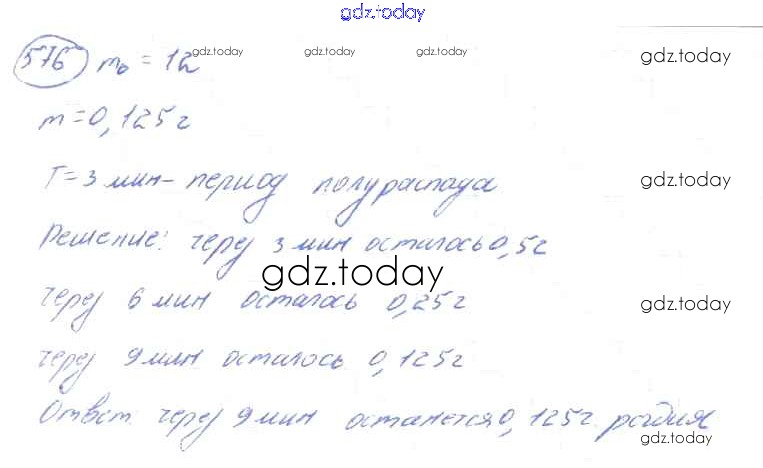 gdz.today
576 m₀ = 1г gdz.today gdz.today gdz.today gdz.today
m = 0,125г
T = 3 мин – период полураспада gdz.today
Решение: через 3 мин осталось 0,5г
gdz.today
через 6 мин осталось 0,25г gdz.today
через 9 мин осталось 0,125г
Ответ через 9 мин останется 0,125г. родия
gdz.today